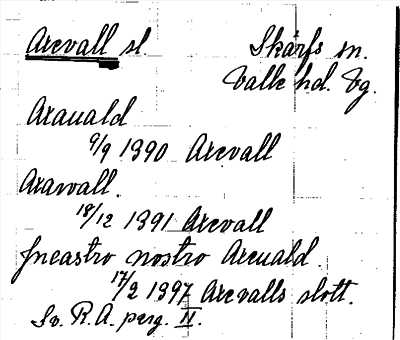 Arevall sl. Skärfs sn.
Valle hd. Vg.
Arauald
9/9 1390 Arevall
Arawall.
18/12 1391 Arevall
Incastro nostro Areuald.
17/2 1397 Arevalls slott.
Sv. R. A. perg. II.